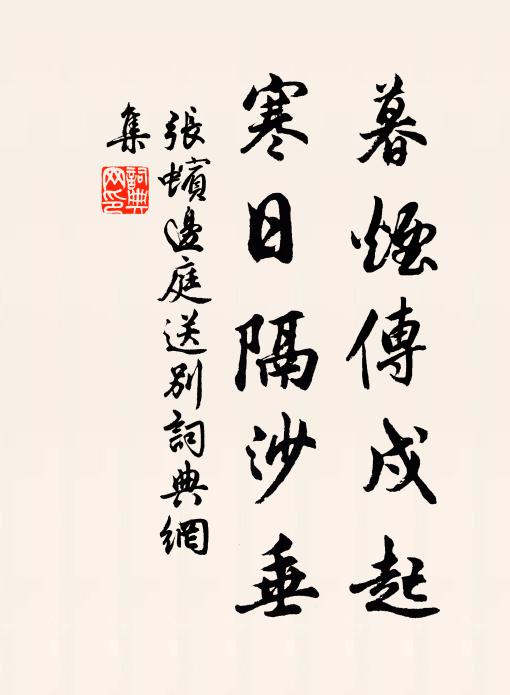 暮煙傳戍起
寒日隔沙垂
張蠙邊庭送別詞典網
集
詞典網印